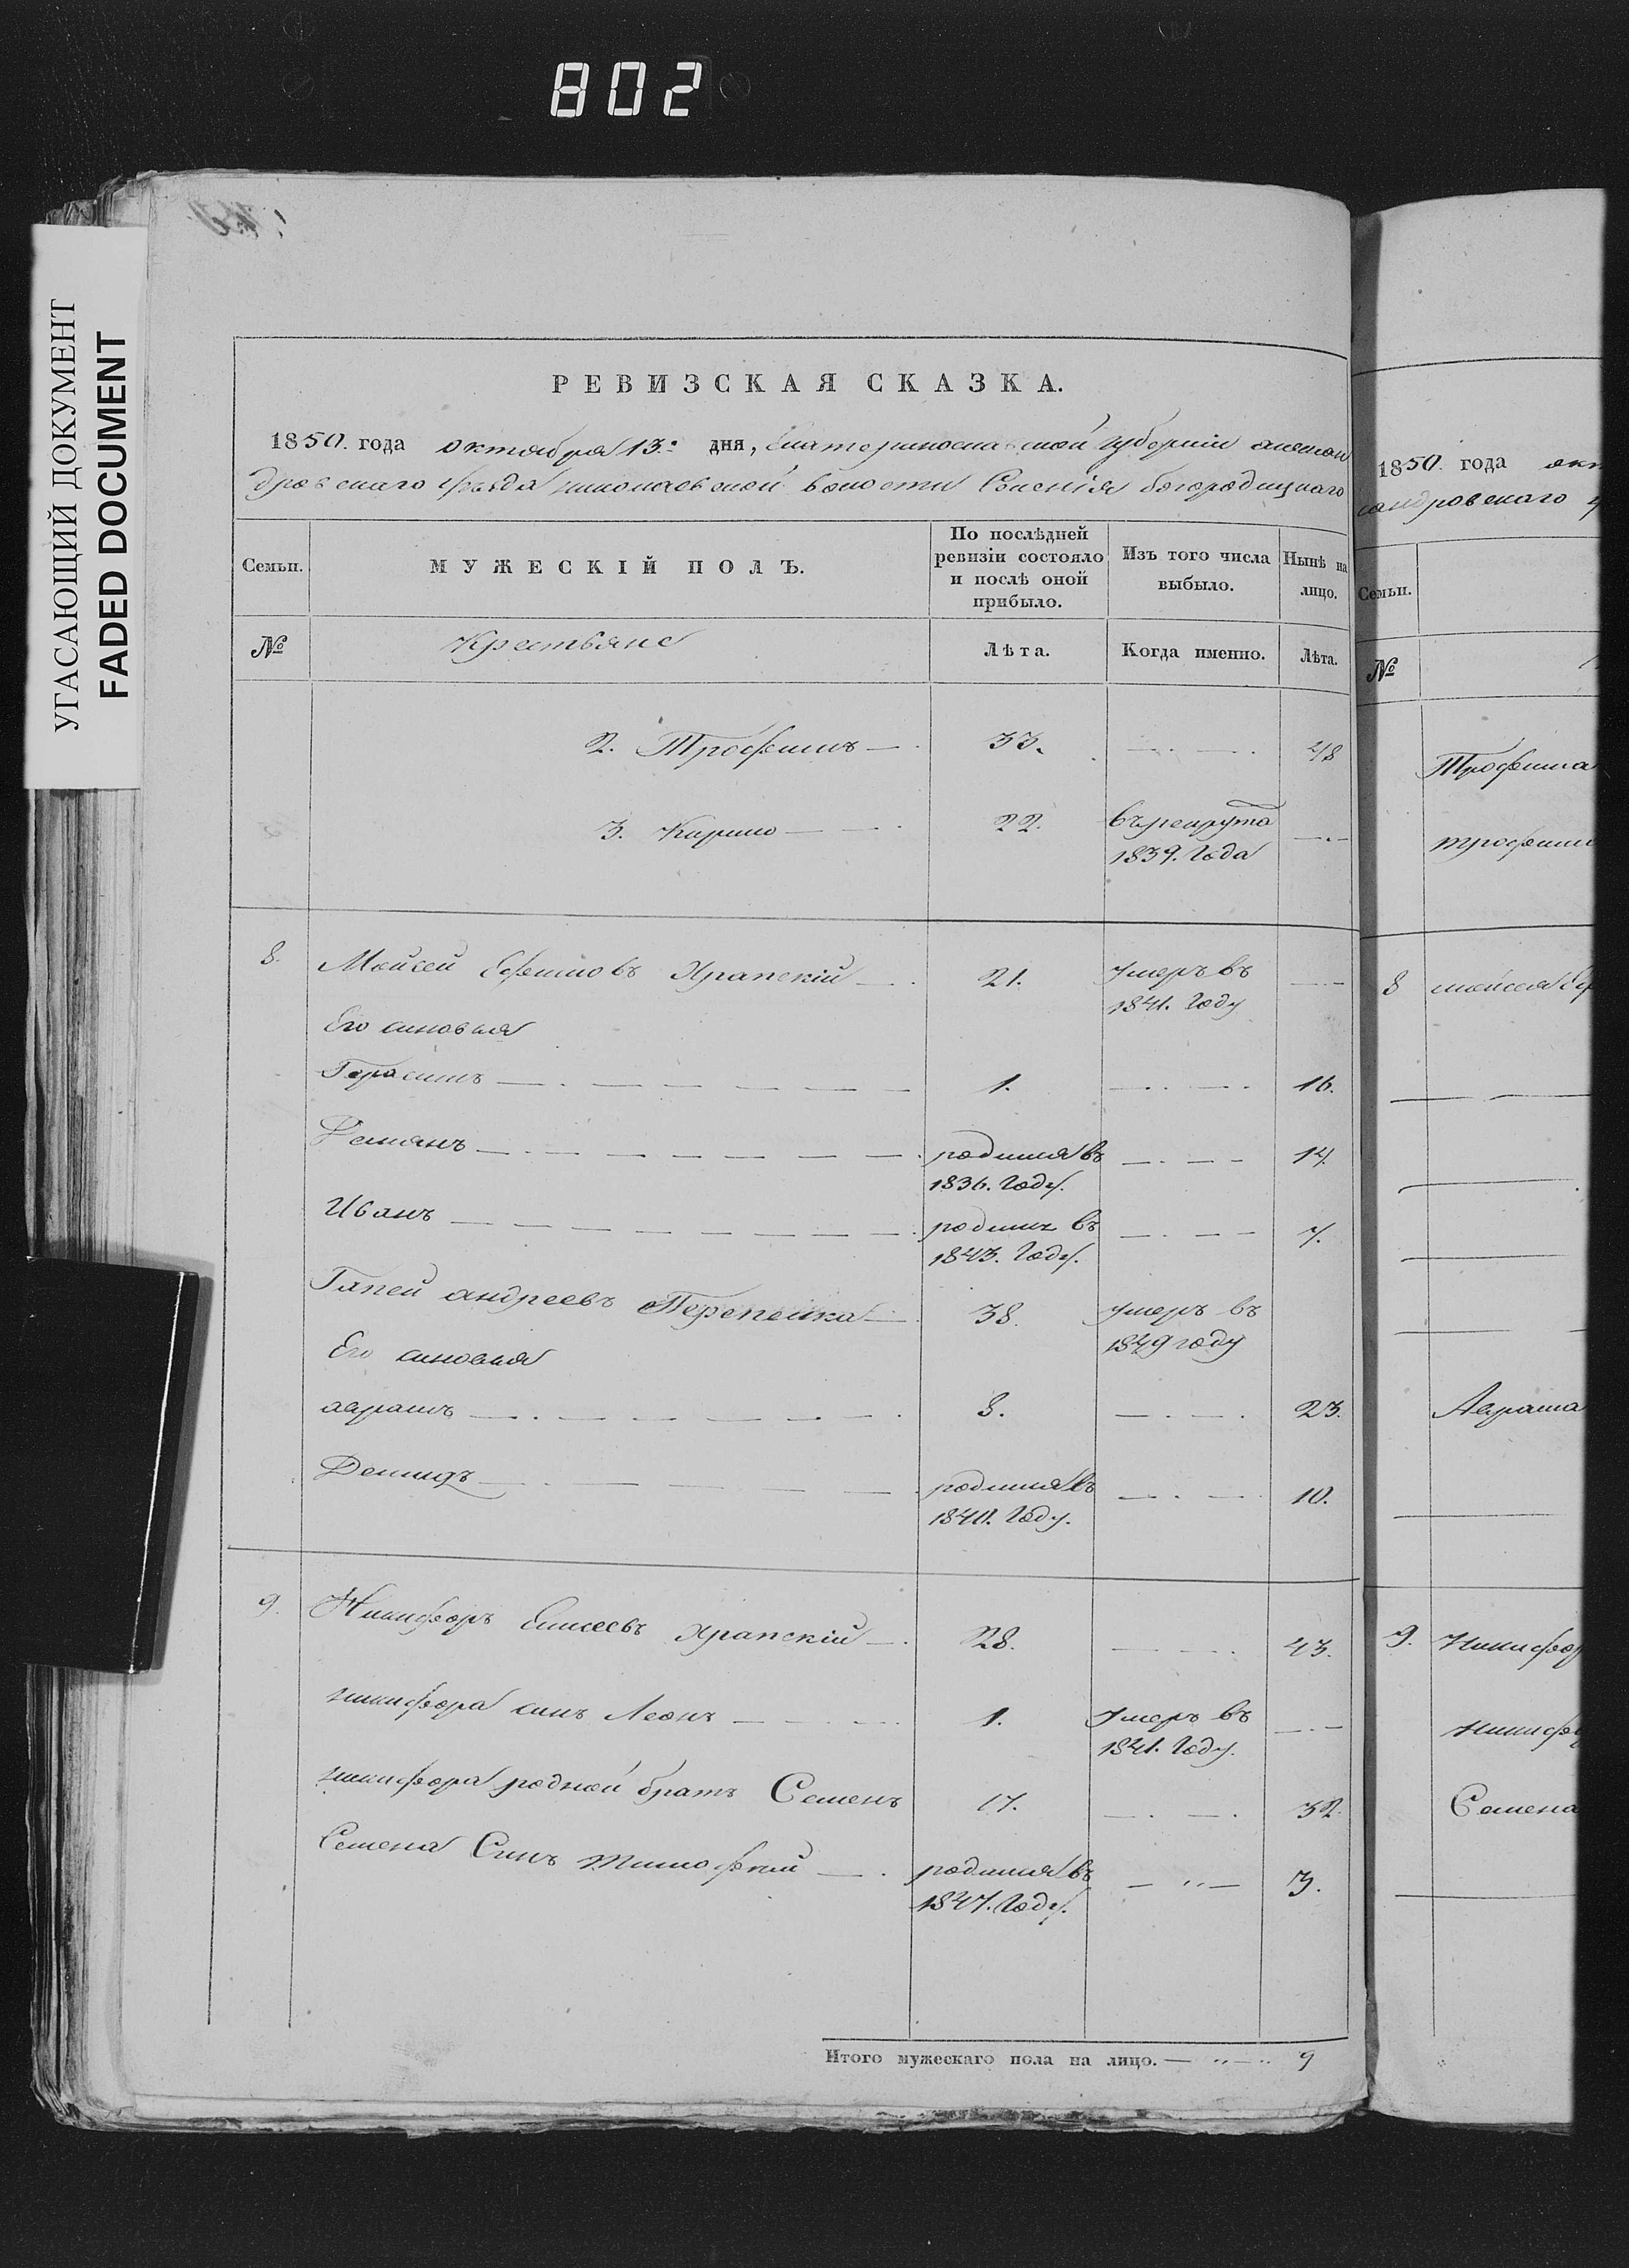 802
УГАСАЮЩИЙ ДОКУМЕНТ
FADED DOCUMENT
РЕВИЗСКАЯ СКАЗКА.
1850. года октября 13: дня, Екатеринославской губернии алексан
дровскаго уѣзда николаевской волости Селенія богородицкаго
Семьи.
МУЖЕСКІЙ ПОЛЪ.
По послѣдней ревизіи состояло и послѣ оной прибыло.
Изъ того числа выбыло.
Нынѣ на лицо.
№ Крестьяне Лѣта. Когда именно. Лѣта.
2. Трофимъ 33. 48
3. Кирило 22. въ рекрута
1839. Года
8. Мойсей Ефимовъ Храпскій 21. умеръ въ
1841. Году
Его синовья
Герасимъ 1. 16.
Демянъ родился въ 14.
1836. Году.
Иванъ родился въ 7.
1843. Году.
андреевъ Перепелка 38. умеръ въ
1849 году
Его синовья
аврамъ 8. 23.
Демидъ родился въ 10.
1840. Году.
9. Никифоръ Елисеевъ Храпскій 28. 43.
никифора синъ Леонъ 1. Умеръ въ
1841. Году.
никифора родной братъ Семенъ 17. 32.
Семена Синъ тимофей родился въ 3.
1847. Году.
Итого мужескаго пола на лицо. 9
1850 года окт
сандровскаго у
Семьи.
№
Трофима
трофим
8 мойсея Еф
Аврама
9. Никифор
никифо
Семена